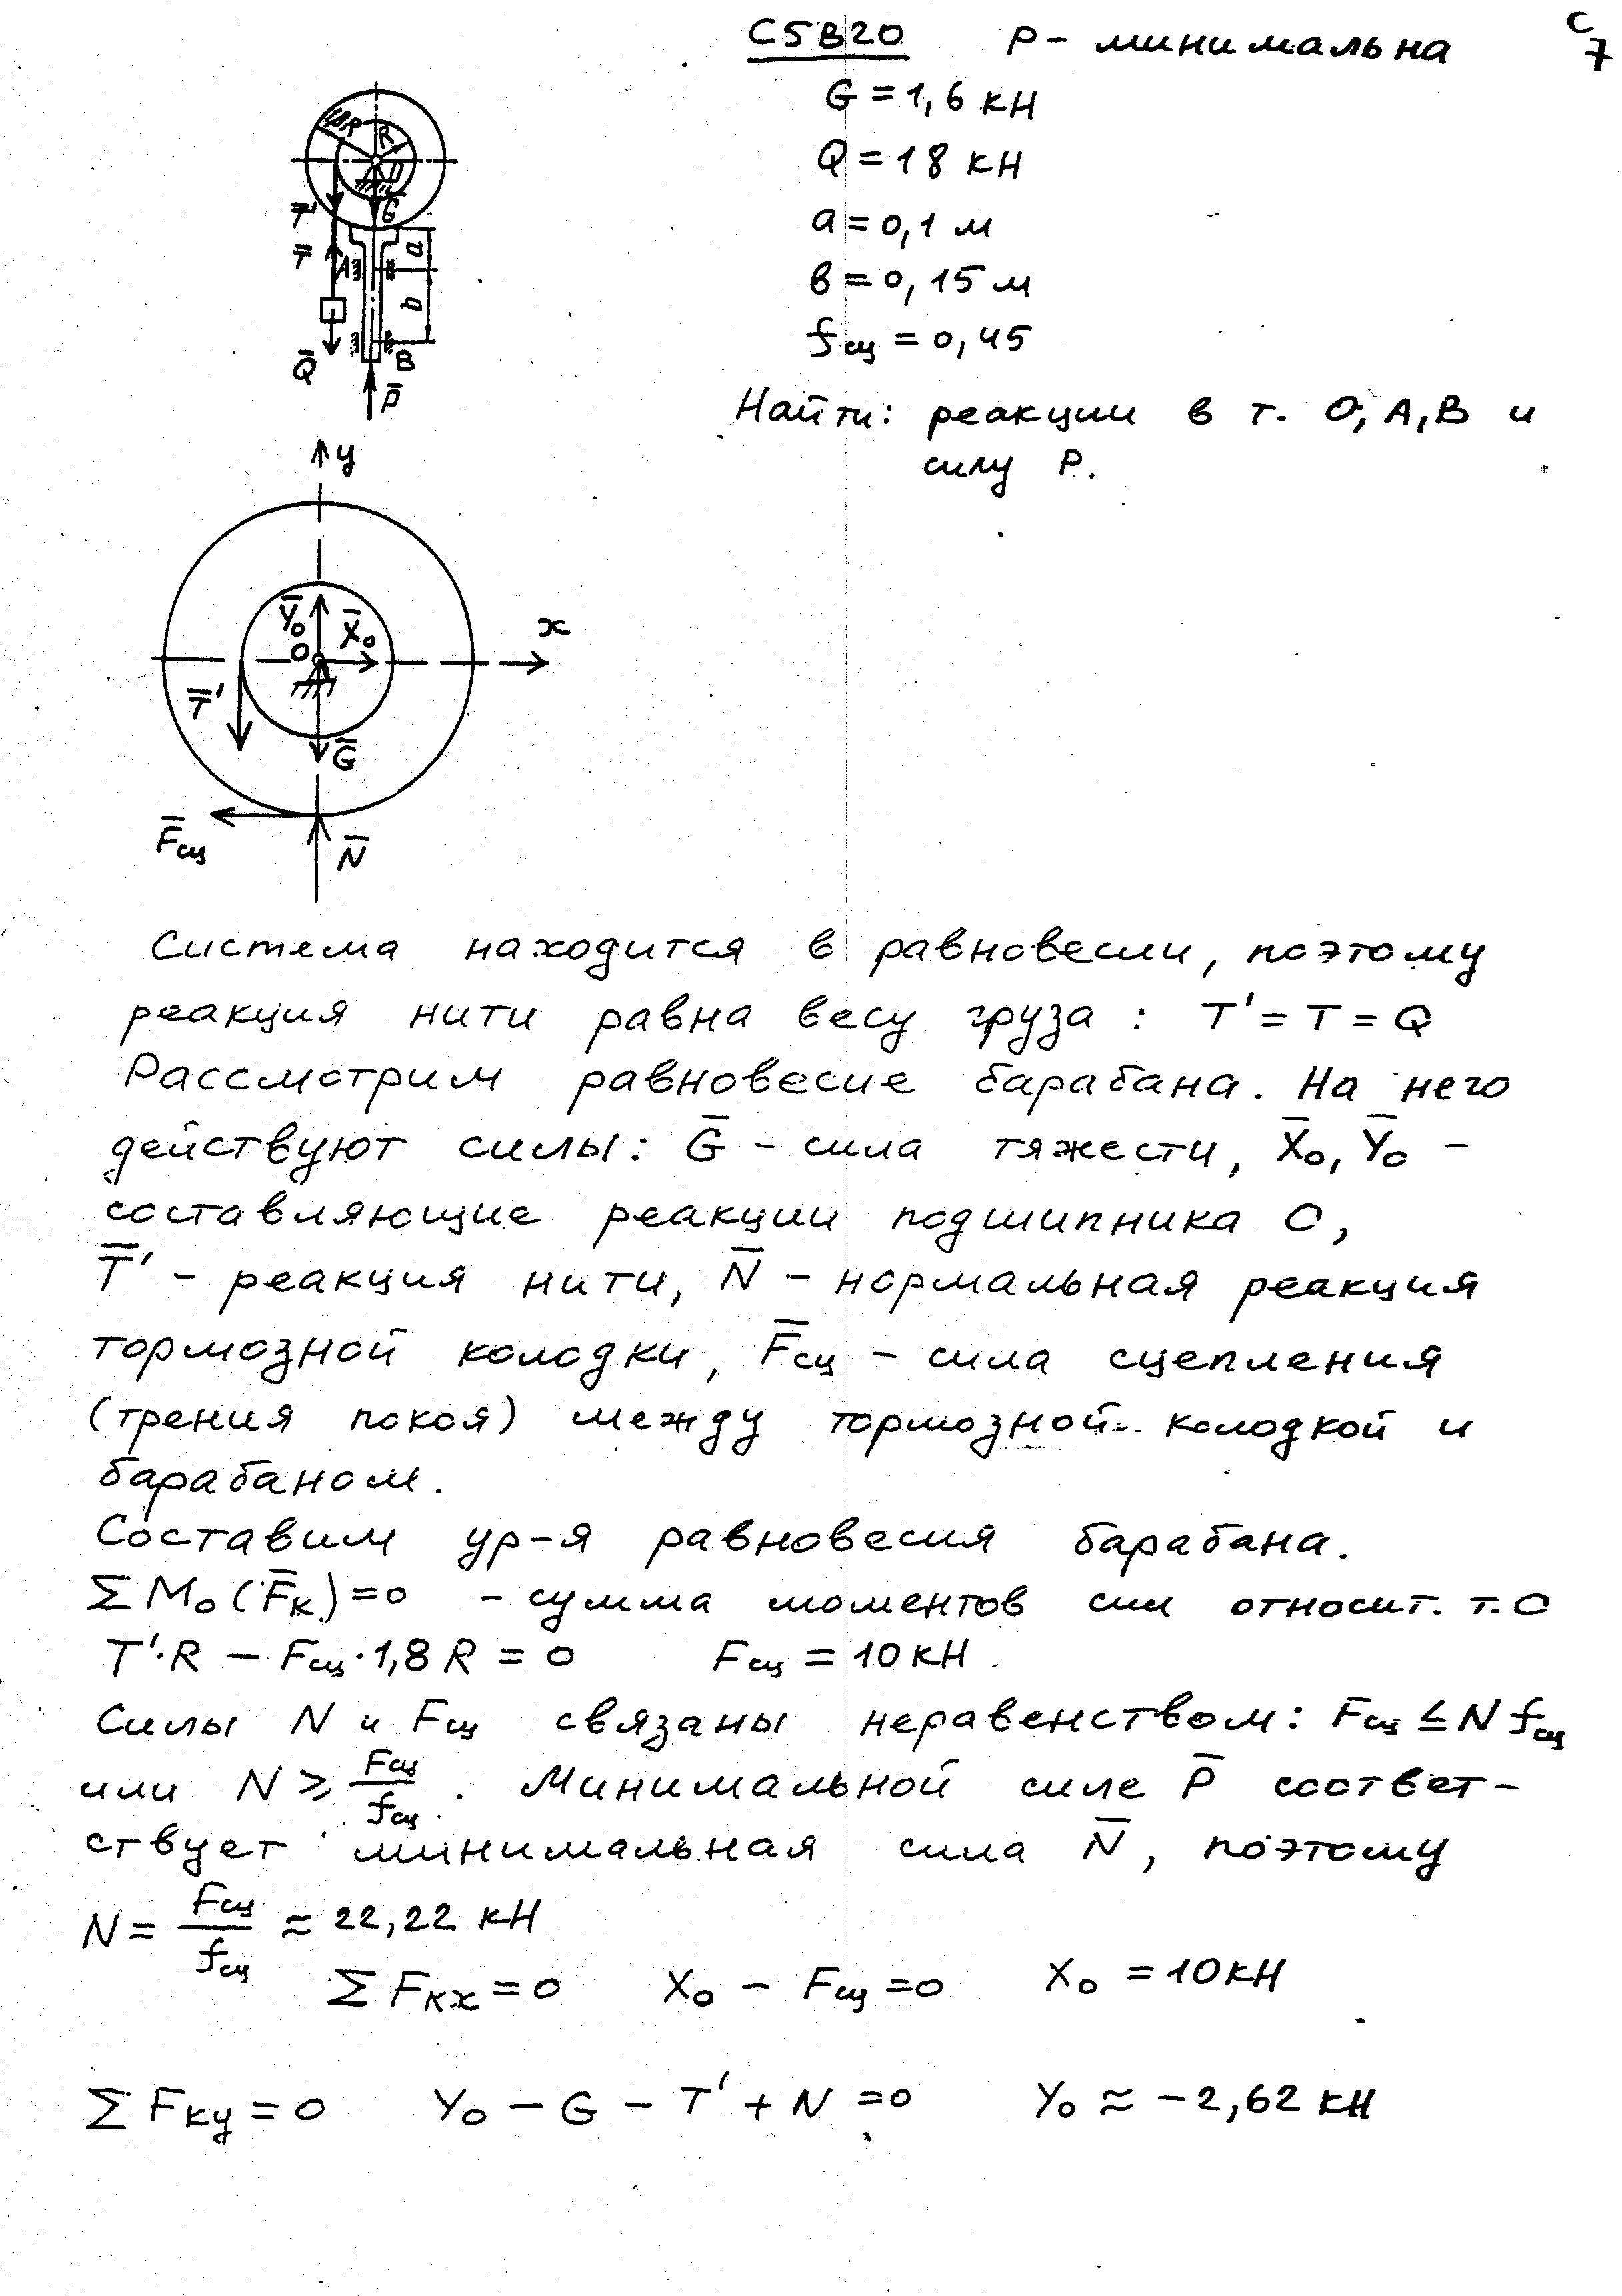 С5В20 P - минимальна
С 7
G = 1,6 кН
Q = 18 кН
a = 0,1 м
в = 0,15 м
fсц = 0,45
Найти: реакции в т. O, A, B и
силу P.
1,8R R
O
T̅' G̅
T̅ A a
b
Q̅ B
P̅
y
Y̅o X̅o
O x
T̅'
G̅
F̅сц N̅
Система находится в равновесии, поэтому
реакция нити равна весу груза : T' = T = Q
Рассмотрим равновесие барабана. На него
действуют силы: G̅ - сила тяжести, X̅o, Y̅o -
составляющие реакции подшипника O,
T̅' - реакция нити, N̅ - нормальная реакция
тормозной колодки, F̅сц - сила сцепления
(трения покоя) между тормозной колодкой и
барабаном.
Составим ур-я равновесия барабана.
ΣMo(F̅к)=0 - сумма моментов сил относит. т. O
T'·R - Fсц·1,8R = 0 Fсц = 10 кН
Силы N и Fсц связаны неравенством: Fсц ≤ N fсц
или N ≥ Fсц/fсц . Минимальной силе P̅ соответ-
ствует минимальная сила N̅, поэтому
N = Fсц/fсц ≈ 22,22 кН
ΣFкx = 0 Xo - Fсц = 0 Xo = 10 кН
ΣFкy = 0 Yo - G - T' + N = 0 Yo ≈ -2,62 кН